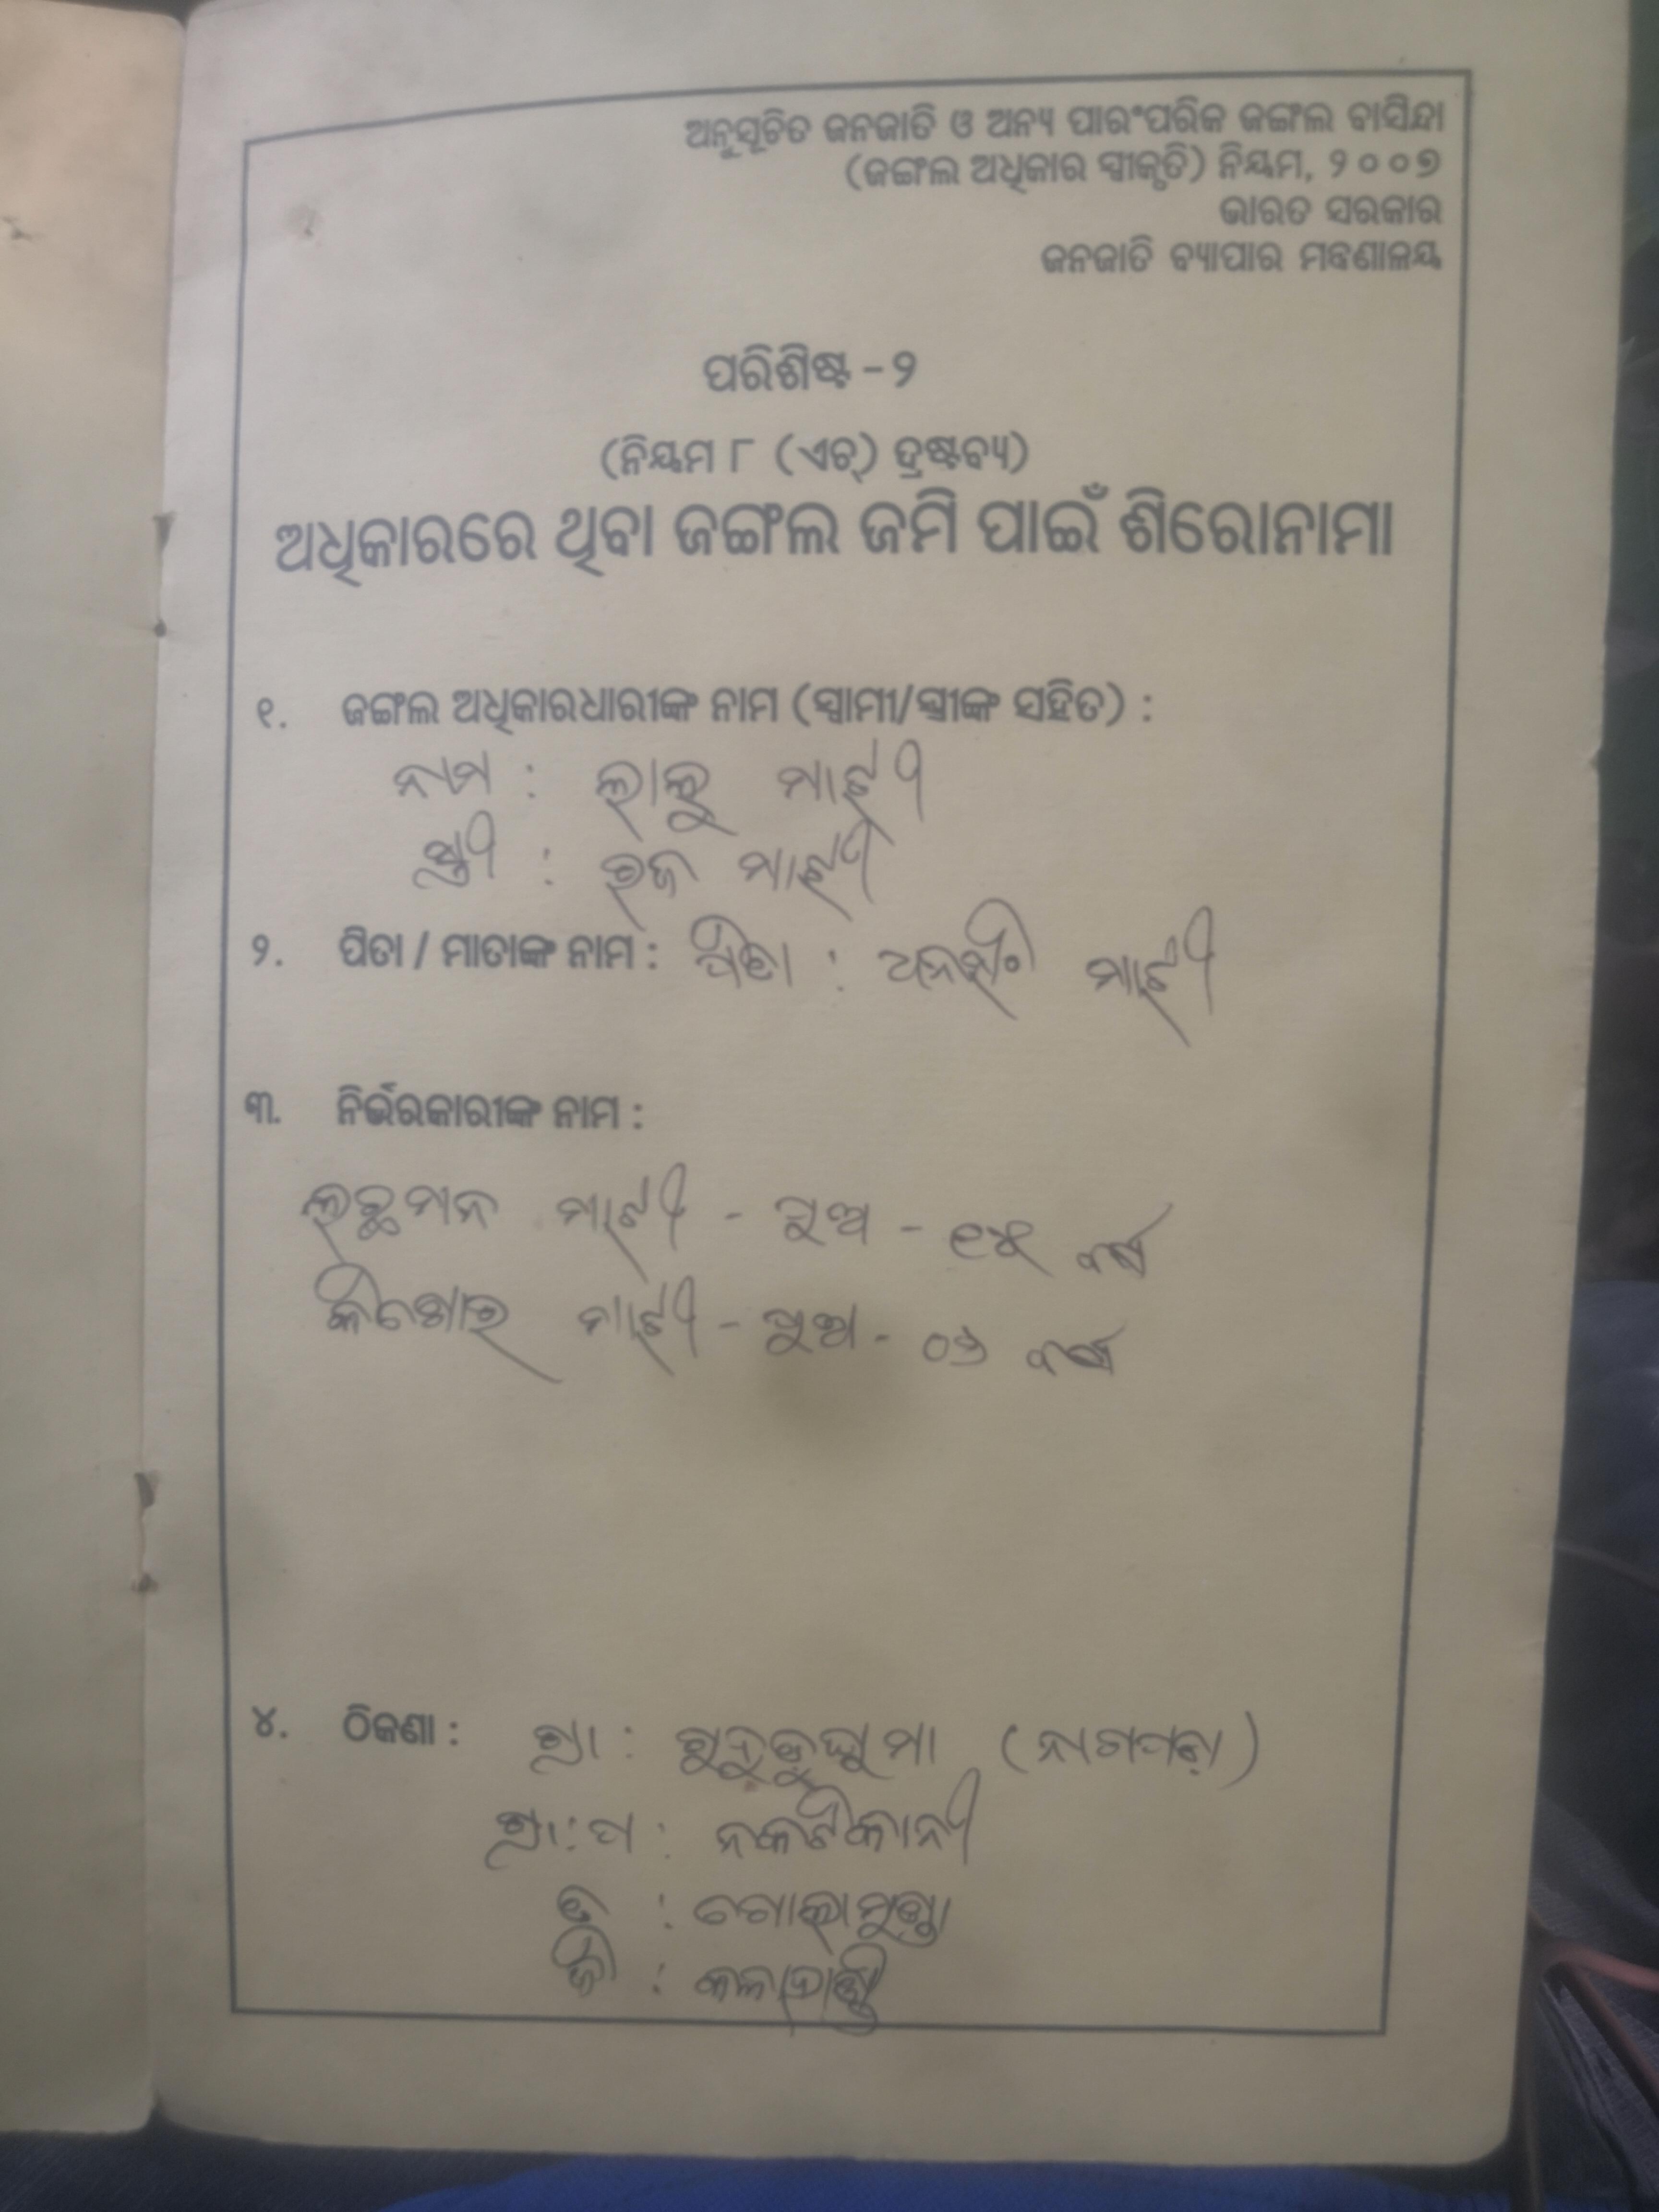 ଅନୁସୂଚିତ ଜନଜାତି ଓ ଅନ୍ୟ ପାରଂପରିକ ଜଙ୍ଗଲ ବାସିନ୍ଦା
(ଜଙ୍ଗଲ ଅଧିକାର ସ୍ୱୀକୃତି) ନିୟମ, ୨୦୦୭
ଭାରତ ସରକାର
ଜନଜାତି ବ୍ୟାପାର ମନ୍ତ୍ରଣାଳୟ
ପରିଶିଷ୍ଟ - ୨
(ନିୟମ ୮ (ଏଚ୍) ଦ୍ରଷ୍ଟବ୍ୟ)
ଅଧିକାରରେ ଥିବା ଜଙ୍ଗଲ ଜମି ପାଇଁ ଶିରୋନାମା
୧. ଜଙ୍ଗଲ ଅଧିକାରଧାରୀଙ୍କ ନାମ (ସ୍ୱାମୀ/ସ୍ତ୍ରୀଙ୍କ ସହିତ) :
ନାମ : ଲାଲୁ ମାଝୀ
ସ୍ତ୍ରୀ : ମାଝୀ
୨. ପିତା / ମାତାଙ୍କ ନାମ : ପିତା : ମାଝୀ
୩. ନିର୍ଭରକାରୀଙ୍କ ନାମ :
ଲଛମନ ମାଝୀ - ପୁଅ - ୧୪ ବର୍ଷ
କିଶୋର ମାଝୀ - ପୁଅ - ୦୬ ବର୍ଷ
୪. ଠିକଣା : ଗ୍ରା :
ଗ୍ରା:ପ : ନକଟିକାନୀ
ବ୍ଲ : ଗୋଲାମୁଣ୍ଡା
ଜି : କଳାହାଣ୍ଡି